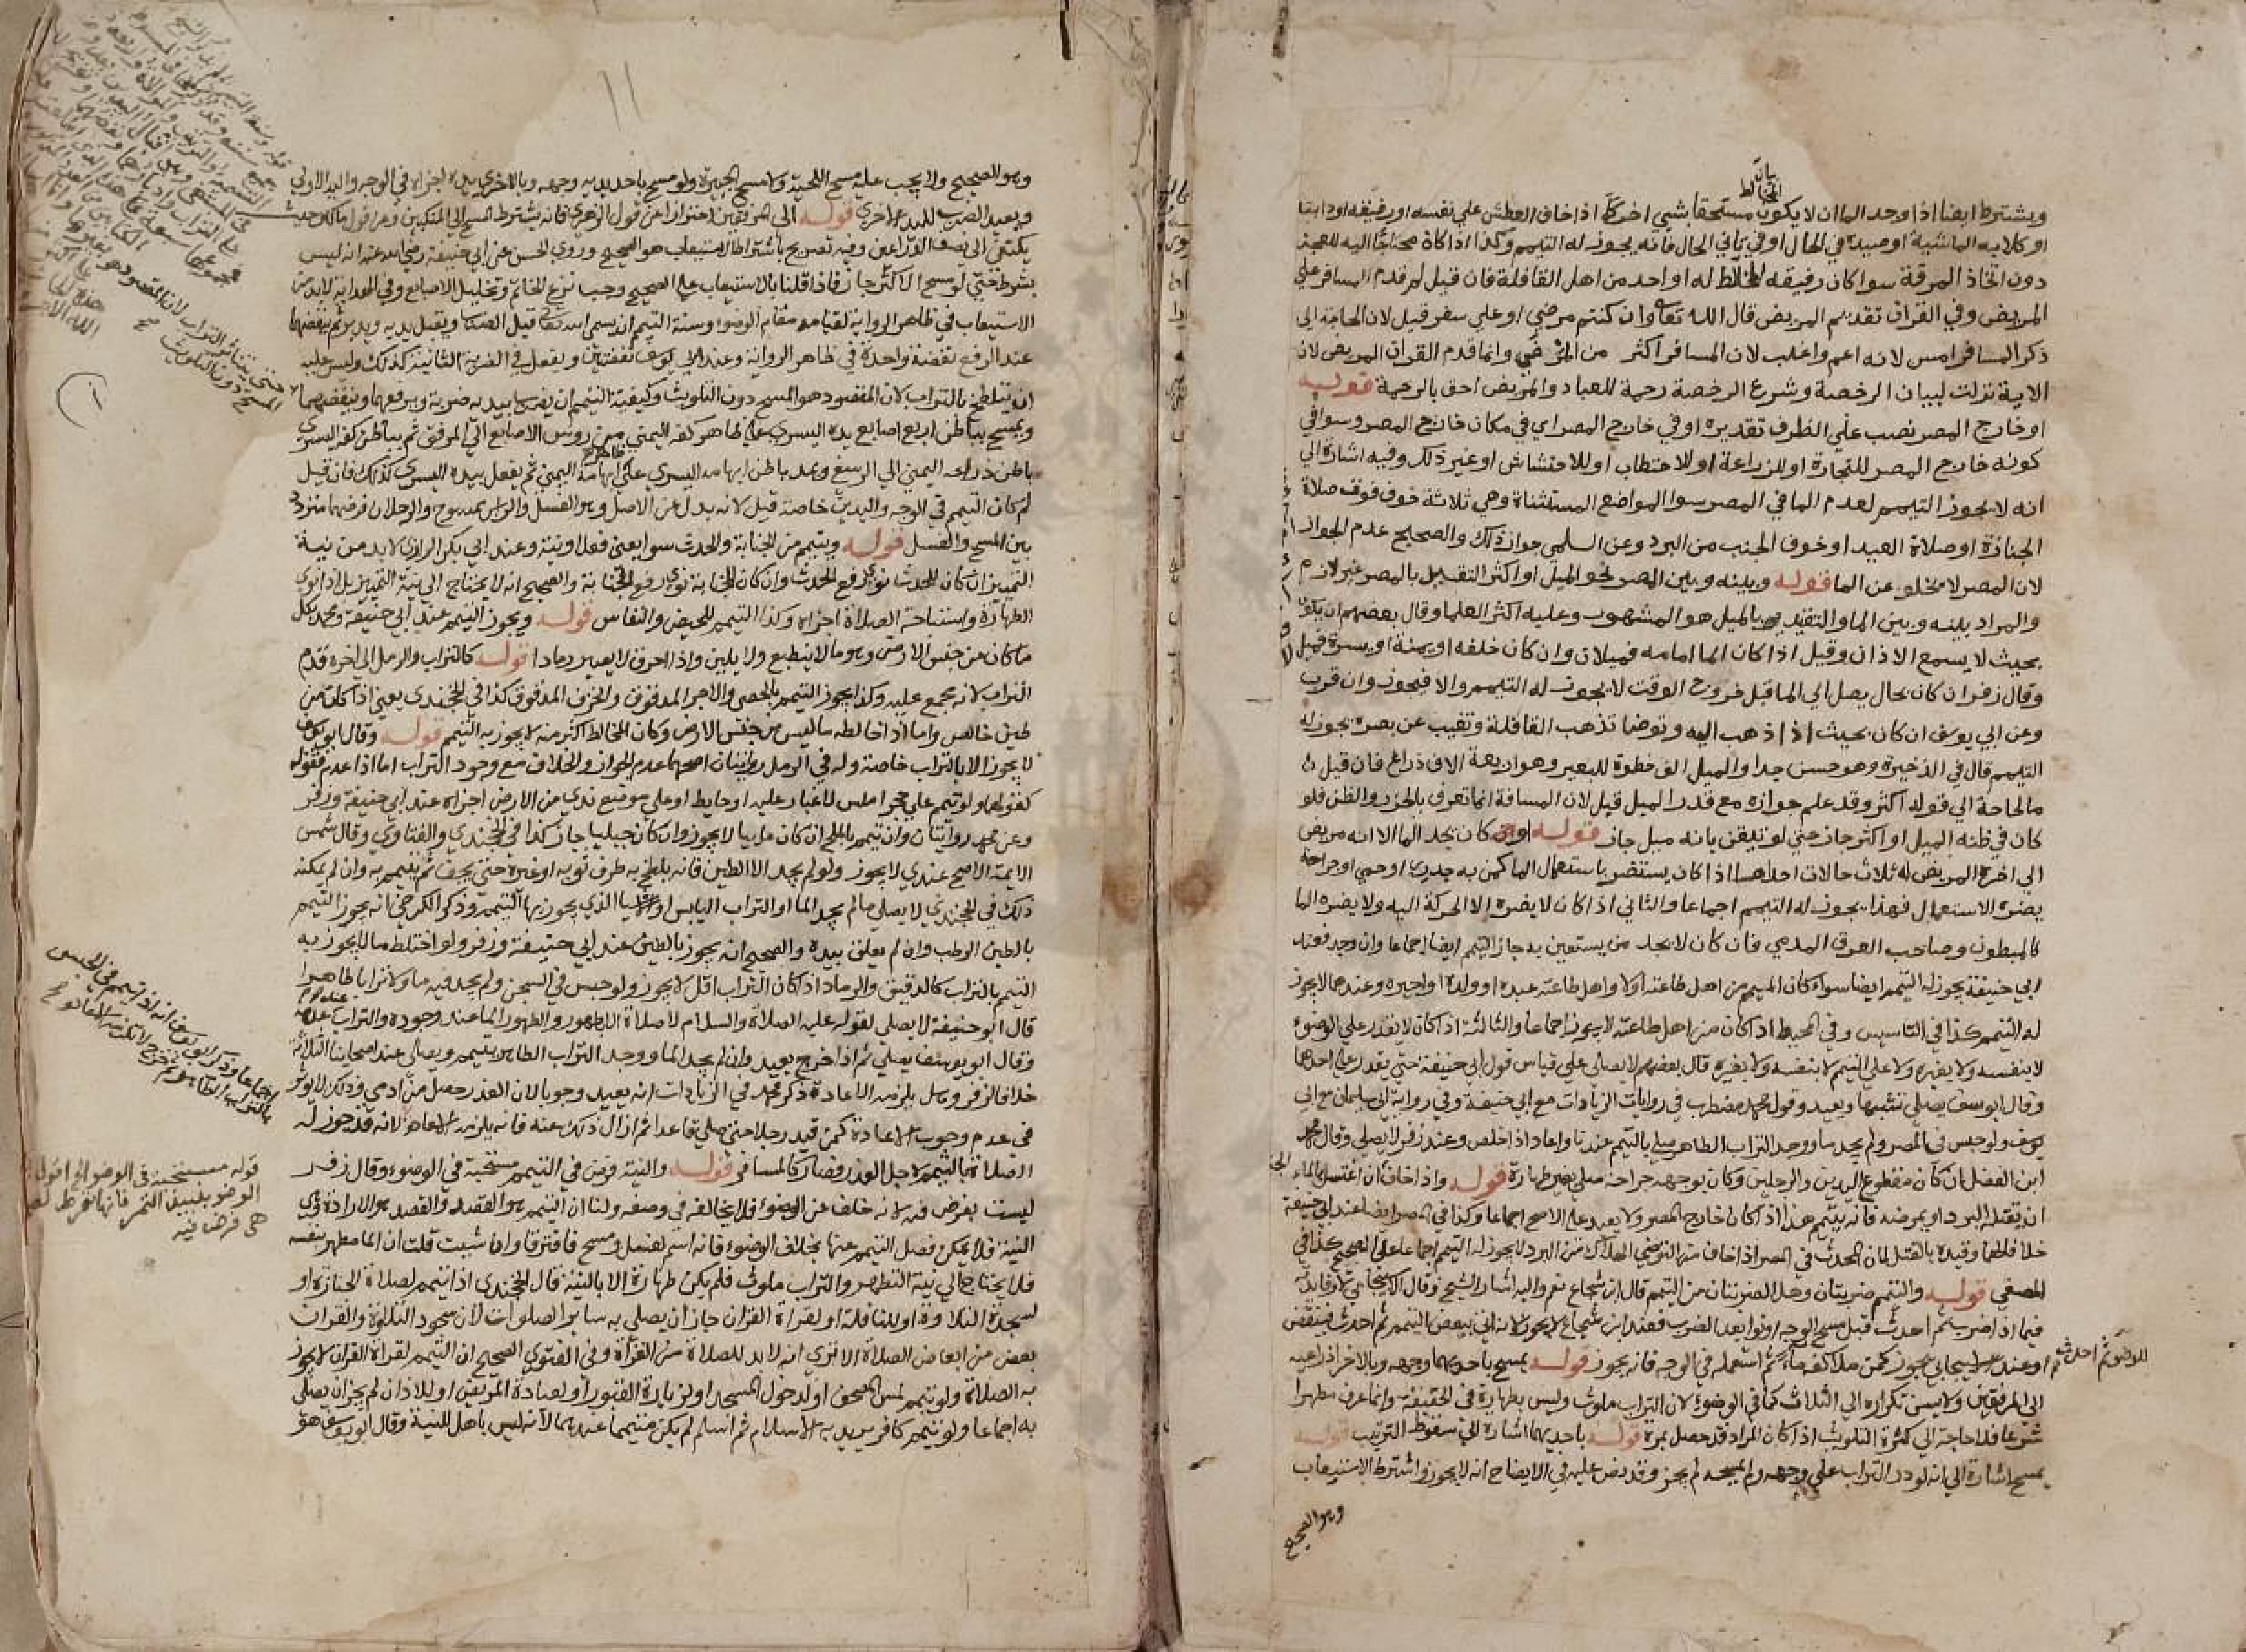 ويشترط ايضا اذا وجد الما ان لا يكون مستحقا بشي اخر كما اذا خاف العطش علي نفسه او رفيقه او دابته
او كلابه الماشية او صيده في الحال او في ثاني الحال فانه يجوز له التيمم وكذا اذا كان محتاجا اليه للعجن
دون اتخاذ المرقة سوا كان رفيقه المخالط له او احد من اهل القافلة فان قيل لم قدم المسافر علي
المريض وفي القران تقديم المريض قال الله تعا وان كنتم مرضي او علي سفر قيل لان الحاجة الي
ذكر المسافر امس لانه اعم واغلب لان المسافر اكثر من المرضي وانما قدم القران المريض لان
الاية نزلت لبيان الرخصة وشرع الرخصة رحمة للعباد والمريض احق بالرحمة قوله
او خارج المصر نصب علي الظرف تقديره او في خارج المصر اي في مكان خارج المصر وسوا في
كونه خارج المصر للتجارة او للزراعة او للاحتطاب او للاحتشاش او غير ذلك وفيه اشارة الي
انه لا يجوز التيمم لعدم الما في المصر سوا المواضع المستثناة وهي ثلاثة خوف فوت صلاة
الجنازة او صلاة العيد او خوف الجنب من البرد وعن السلمي جواز ذلك والصحيح عدم الجواز
لان المصر لا يخلو عن الما قوله وبينه وبين المصر نحو الميل او اكثر التقييد بالمصر غير لازم
والمراد بينه وبين الما والتقييد بالميل هو المشهور وعليه اكثر العلما وقال بعضهم ان يكون
بحيث لا يسمع الاذان وقيل اذا كان الما امامه فميلان وان كان خلفه او يمنة او يسرة فميل
وقال زفر ان كان بحال يصل الي الما قبل خروج الوقت لا يجوز له التيمم والا فيجوز وان قرب
وعن ابي يوسف ان كان بحيث اذا ذهب اليه وتوضا تذهب القافلة وتغيب عن بصره يجوز له
التيمم قال في الذخيرة وهو حسن جدا والميل الف خطوة للبعير وهو اربعة الاف ذراع فان قيل
ما الحاجة الي قوله اكثر وقد علم جوازه مع قدر الميل قيل لان المسافة انما تعرف بالحزر والظن فلو
كان في ظنه الميل او اكثر جاز حتي لو تيقن بانه ميل جاز قوله او كان يجد الما الا انه مريض
الي اخره المريض له ثلاث حالات احداها اذا كان يستضر باستعمال الما كمن به جدري او حمي او جراحة
يضره الاستعمال فهذا يجوز له التيمم اجماعا والثاني اذا كان لا يضره الا الحركة اليه ولا يضره الما
كالمبطون وصاحب العرق المدمي فان كان لا يجد من يستعين به جاز التيمم ايضا اجماعا وان وجد فعند
ابي حنيفة يجوز له التيمم ايضا سواء كان المتيمم من اهل طاعته او لا واهل طاعته عبده او ولده او اجيره وعندهما لا يجوز
له التيمم كذا في التاسيس وفي المحيط اذا كان من اهل طاعته لا يجوز اجماعا والثالثة اذا كان لا يقدر علي الوضوء
لا بنفسه ولا بغيره ولا علي التيمم لا بنفسه ولا بغيره قال بعضهم لا يصلي علي قياس قول ابي حنيفة حتي يقدر علي احدهما
وقال ابو يوسف يصلي تشبيها ويعيد وقول محمد مضطرب في روايات الزيادات مع ابي حنيفة وفي رواية ابي سليمان مع ابي
يوسف ولو حبس في المصر ولم يجد ما ووجد التراب الطاهر صلي بالتيمم عندنا واعاد اذا خلص وعند زفر لا يصلي وقال محمد
ابن الفضل ان كان مقطوع اليدين والرجلين وكان بوجهه جراحة صلي بغير طهارة قوله واذا خاف ان اغتسل بالماء
ان يقتله البرد او يمرضه فانه يتيمم هذا اذا كان خارج المصر ولا يعيد علي الاصح اجماعا وكذا في المصر ايضا عند ابي حنيفة
خلافا لهما وقيده بالغسل لان المحدث في المصر اذا خاف من التوضي الهلاك من البرد لا يجوز له التيمم اجماعا علي الصحيح كذا في
المصفي قوله والتيمم ضربتان وهل الضربتان من التيمم قال ابن شجاع نعم واليه اشار الشيخ وقال الاسبيجابي لا وفائدته
فيما اذا ضرب ثم احدث قبل مسح الوجه او نوي بعد الضرب فعند ابن شجاع لا يجوز لانه اتي ببعض التيمم ثم احدث فينتقض
وعند الاسبيجابي يجوز كمن ملا كفه ماء ثم استعمله في الوجه فانه يجوز قوله يمسح باحديهما وجهه وبالاخري ذراعيه
الي المرفقين ولا يسن تكراره الي الثلاث كما في الوضوء لان التراب ملوث وليس بطهارة في الحقيقة وانما عرف مطهرا
شرعا فلا حاجة الي كثرة التلويث اذا كان المراد قد حصل بمرة قوله باحديهما اشارة الي سقوط الترتيب قوله
يمسح اشارة الي انه لو ذر التراب علي وجهه ولم يمسحه لم يجز وقد نص عليه في الايضاح انه لا يجوز واشترط الاستيعاب
وهو الصحيح
للوضوء ثم احدث
وهو الصحيح ولا يجب عليه مسح اللحية ولا مسح الجبيرة ولو مسح باحدي يديه وجهه وبالاخري يده اجزاه في الوجه واليد الاولي
ويعيد الضرب لليد الاخري قوله الي المرفقين احترازا عن قول الزهري فانه يشترط المسح الي المنكبين وعن قول مالك حيث
يكتفي الي نصف الذراعين وفيه تصريح باشتراط الاستيعاب هو الصحيح وروي الحسن عن ابي حنيفة رضي الله عنه انه ليس
بشرط حتي لو مسح الاكثر جاز فاذا قلنا بالاستيعاب علي الصحيح وجب نزع الخاتم وتخليل الاصابع وفي الهداية لا بد من
الاستيعاب في ظاهر الرواية لقيامه مقام الوضوء وسنة التيمم ان يسمي الله تعالي قبل الضرب ويقبل بيديه ويدبر ثم ينفضهما
عند الرفع نفضة واحدة في ظاهر الرواية وعند ابي يوسف نفضتين ويفعل في الضربة الثانية كذلك وليس عليه
ان يتلطخ بالتراب لان المقصود هو المسح دون التلويث وكيفية التيمم ان يضرب بيديه ضربة ويرفعهما وينفضهما
ويمسح بباطن اربع اصابع يده اليسري علي ظاهر كفه اليمني من روس الاصابع الي المرفق ثم بباطن كفه اليسري
باطن ذراعه اليمني الي الرسغ ويمد باطن ابهامه اليسري علي ابهامه اليمني ثم يفعل بيده اليسري كذلك فان قيل
لم كان التيمم في الوجه واليدين خاصة قيل لانه بدل عن الاصل وهو الغسل والراس ممسوح والرجلان فرضهما متردد
بين المسح والغسل قوله ويتيمم من الجنابة والحدث سوا يعني فعلا ونية وعند ابي بكر الرازي لا بد من نية
التمييز ان كان للحدث نوي رفع الحدث وان كان للجنابة نوي رفع الجنابة والصحيح انه لا يحتاج الي نية التمييز بل اذا نوي
الطهارة واستباحة الصلاة اجزاه وكذا التيمم للحيض والنفاس قوله ويجوز التيمم عند ابي حنيفة ومحمد بكل
ما كان من جنس الارض وهو ما لا ينطبع ولا يلين واذا احرق لا يصير رمادا قوله كالتراب والرمل الي اخره قدم
التراب لانه مجمع عليه وكذا يجوز التيمم بالحصي والاجر المدقوق والخزف المدقوق كذا في الخجندي يعني اذا كان من
طين خالص واما اذا خالطه ما ليس من جنس الارض وكان المخالط اكثر منه لا يجوز به التيمم قوله وقال ابو يوسف
لا يجوز الا بالتراب خاصة وله في الرمل روايتان اصحهما عدم الجواز والخلاف مع وجود التراب اما اذا عدم فقوله
كقولهما ولو تيمم علي حجر املس لا غبار عليه او حايط او علي موضع ندي من الارض اجزاه عند ابي حنيفة وزفر
وعن محمد روايتان وان تيمم بالملح ان كان مايا لا يجوز وان كان جبليا جاز كذا في الخجندي والفتاوي وقال شمس
الايمة الاصح عندي لا يجوز ولو لم يجد الا الطين فانه يلطخ به طرف ثوبه او غيره حتي يجف ثم يتيمم به وان لم يمكنه
ذلك في الخجندي لا يصلي ما لم يجد الما او التراب اليابس او الاشيا الذي يجوز بها التيمم وذكر الكرخي انه يجوز التيمم
بالطين الرطب وان لم يعلق بيده والصحيح انه يجوز بالطين عند ابي حنيفة وزفر ولو اختلط ما لا يجوز به
التيمم بالتراب كالدقيق والرماد اذا كان التراب اقل لا يجوز ولو حبس في السجن ولم يجد فيه ما ولا ترابا طاهرا
قال ابو حنيفة لا يصلي لقوله عليه الصلاة والسلام لا صلاة الا بطهور والطهور الما عند وجوده والتراب عند عدمه
وقال ابو يوسف يصلي ثم اذا خرج يعيد وان لم يجد الما ووجد التراب الطاهر يتيمم ويصلي عند اصحابنا الثلاثة
خلافا لزفر وهل يلزمه الاعادة ذكر محمد في الزيادات انه يعيد وجوبا لان العذر حصل من ادمي وذلك لا يوثر
في عدم وجوب الاعادة كمن قيد رجلا حتي صلي قاعدا ثم ازال ذلك عنه فانه يلزمه الاعادة لانه قد جوز له
الصلاة بالتيمم لاجل العذر فصار كالمسافر قوله والنية فرض في التيمم مستحبة في الوضوء وقال زفر
ليست بفرض فيه لانه خلف عن الوضوء فلا يخالفه في وصفه ولنا ان التيمم هو القصد والقصد هو الارادة وهي
النية فلا يمكن فصل التيمم عنها بخلاف الوضوء فانه اسم لغسل ومسح فافترقا وان شيت قلت ان الما مطهر بنفسه
فلا يحتاج الي نية التطهير والتراب ملوث فلم يكن طهارة الا بالنية قال الخجندي اذا تيمم لصلاة الجنازة او
لسجدة التلاوة او للنافلة او لقراة القران جاز ان يصلي به ساير الصلوات لان سجود التلاوة والقران
بعض من ابعاض الصلاة الا تري انه لا بد للصلاة من القراة وفي الفتوي الصحيح ان التيمم لقراة القران لا يجوز
به الصلاة ولو تيمم لمس المصحف او لدخول المسجد او لزيارة القبور او لعيادة المريض او للاذان لم يجز ان يصلي
به اجماعا ولو تيمم كافر يريد به الاسلام ثم اسلم لم يكن متيمما عندهما لانه ليس باهل للنية وقال ابو يوسف هو
قوله مستحبة في الوضوء الخ اقول
الوضو بنبيذ التمر فانها شرط
هي فرض فيه